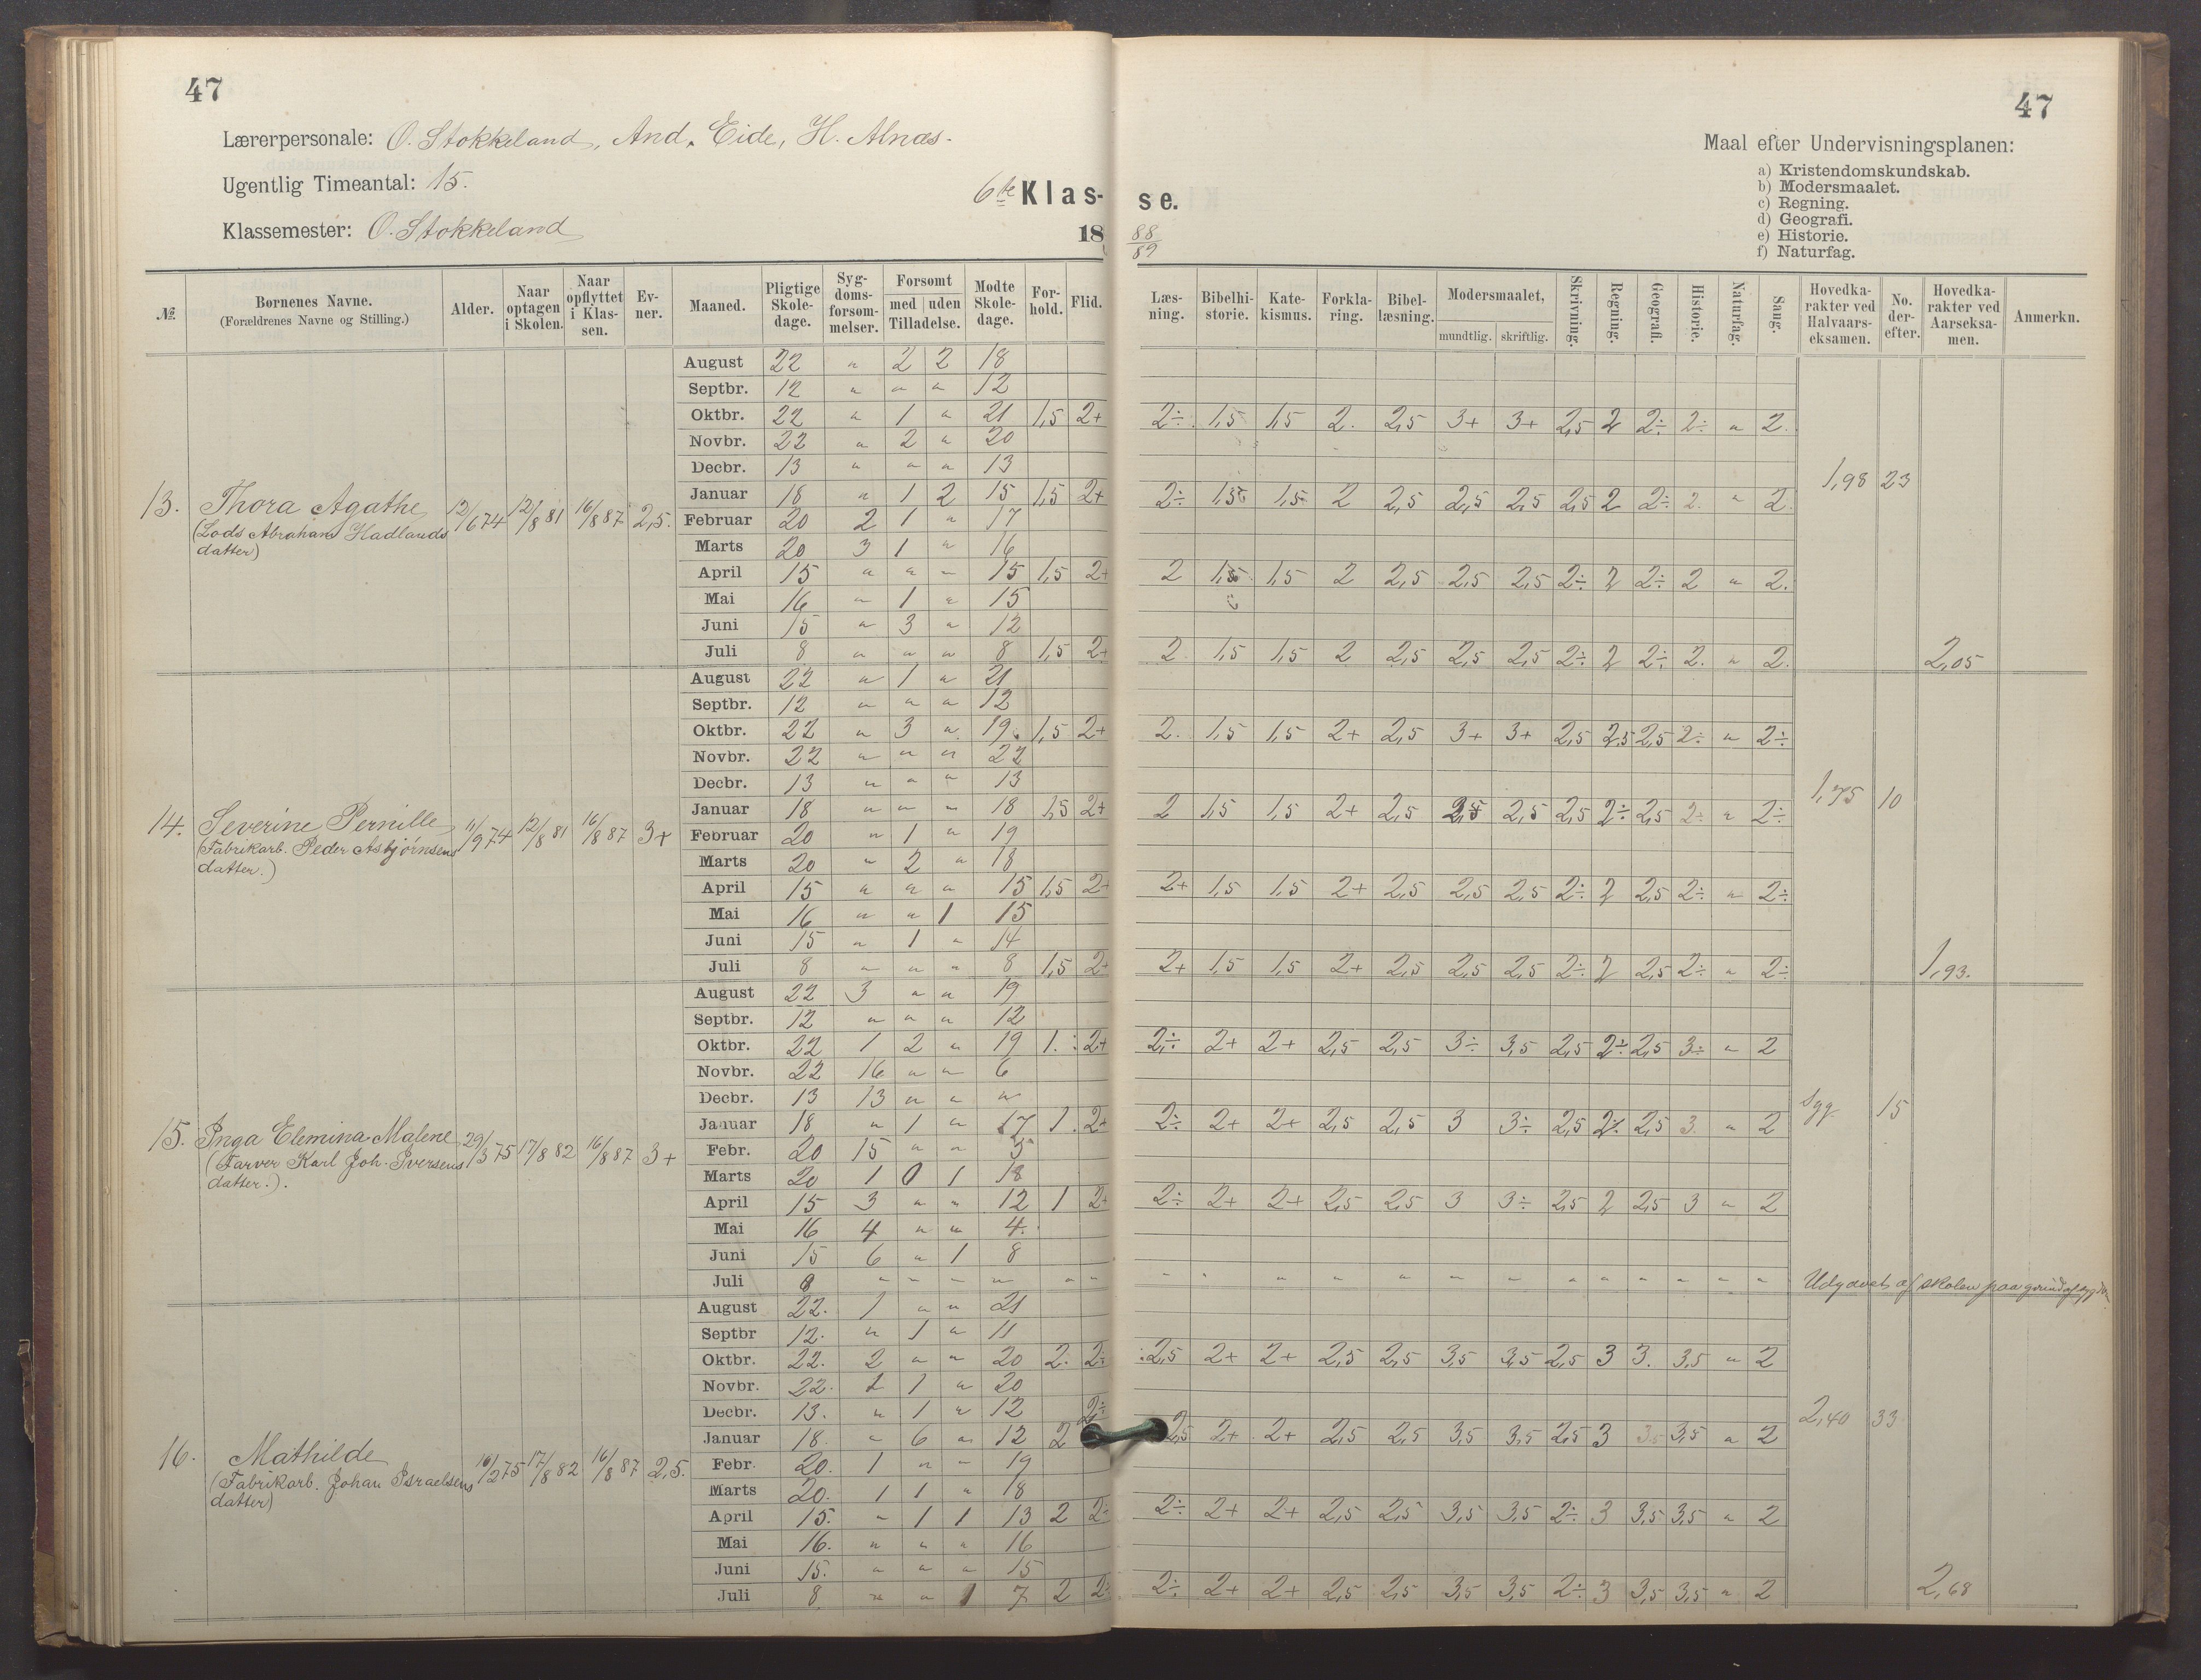 47
Lærerpersonale: O. Stokkeland, And. Eide, H. Alnæs.
Ugentlig Timeantal: 15.
Klassemester: O. Stokkeland
6te Klas-
18
№ | Børnenes Navne. (Forældrenes Navne og Stilling.) | Alder. | Naar optagen i Skolen. | Naar opflyttet i Klassen. | Evner. | Maaned. | Pligtige Skoledage. | Sygdomsforsømmelser. | Forsømt med / uden Tilladelse. | Mødte Skoledage. | Forhold. | Flid.
13. Thora Agathe 12/6 74 12/8 81 16/8 87 2,5.
(Lods Abraham Hadlands
datter)
August 22 " 2 2 18
Septbr. 12 " " " 12
Oktbr. 22 " 1 " 21 1,5 2+
Novbr. 22 " 2 " 20
Decbr. 13 " " " 13
Januar 18 " 1 2 15 1,5 2+
Februar 20 2 1 " 17
Marts 20 3 1 " 16
April 15 " " " 15 1,5 2+
Mai 16 " 1 " 15
Juni 15 " 3 " 12
Juli 8 " " " 8 1,5 2+
14. Severine Pernille 11/9 74 12/8 81 16/8 87 3+
(Fabrikarb. Peder Asbjørnsens
datter.)
August 22 " 1 " 21
Septbr. 12 " " " 12
Oktbr. 22 " 3 " 19 1,5 2+
Novbr. 22 " " " 22
Decbr. 13 " " " 13
Januar 18 " " " 18 1,5 2+
Februar 20 " 1 " 19
Marts 20 " 2 " 18
April 15 " " " 15 1,5 2+
Mai 16 " " 1 15
Juni 15 " 1 " 14
Juli 8 " " " 8 1,5 2+
15. Inga Elemina Malene 29/3 75 17/8 82 16/8 87 3+
(Farver Karl Joh. Iversens
datter.).
August 22 3 " " 19
Septbr. 12 " " " 12
Oktbr. 22 1 2 " 19 1. 2+
Novbr. 22 16 " " 6
Decbr. 13 13 " " "
Januar 18 " 1 " 17 1. 2+
Febr. 20 15 " " 5
Marts 20 1 0 1 18
April 15 3 " " 12 1 2+
Mai 16 4 " " 4.
Juni 15 6 " 1 8
Juli 8 " " " " " "
16. Mathilde 16/2 75 17/8 82 16/8 87 2,5.
(Fabrikarb. Johan Israelsens
datter)
August 22. 1 " " 21
Septbr 12. " 1 " 11
Oktbr. 22. 2 " " 20 2. 2÷
Novbr. 22. 1 1 " 20
Decbr. 13. " 1 " 12
Januar 18. " 6 " 12 2 2÷
Febr. 20. 1 " " 19
Marts 20. 1 1 " 18
April 15. " 1 1 13 2 2÷
Mai 16. " " " 16
Juni 15. " " " 15
Juli 8 " " 1 7 2 2
47
Maal efter Undervisningsplanen:
a) Kristendomskundskab.
b) Modersmaalet.
c) Regning.
d) Geografi.
e) Historie.
f) Naturfag.
se.
88
89
Læsning. | Bibelhistorie. | Katekismus. | Forklaring. | Bibellæsning. | Modersmaalet, mundtlig. / skriftlig. | Skrivning. | Regning. | Geografi. | Historie. | Naturfag. | Sang. | Hovedkarakter ved Halvaarseksamen. | No. derefter. | Hovedkarakter ved Aarseksamen. | Anmerkn.
2÷ 1,5 1,5 2. 2,5 3+ 3+ 2,5 2 2÷ 2÷ " 2.
1,98 23
2÷ 1,5 1,5 2 2,5 2,5 2,5 2,5 2 2÷ 2. " 2.
2 1,5 1,5 2 2,5 2,5 2,5 2÷ 2 2÷ 2 " 2.
2 1,5 1,5 2 2,5 2,5 2,5 2÷ 2 2÷ 2. " 2. 2,05
2. 1,5 1,5 2+ 2,5 3+ 3+ 2,5 2,5 2,5 2÷ " 2÷
1,75 10
2 1,5 1,5 2+ 2,5 2,5 2,5 2,5 2÷ 2,5 2÷ " 2÷
2+ 1,5 1,5 2+ 2,5 2,5 2,5 2÷ 2 2,5 2÷ " 2÷
2+ 1,5 1,5 2+ 2,5 2,5 2,5 2÷ 2 2,5 2÷ " 2÷ 1,93.
2÷ 2+ 2+ 2,5 2,5 3÷ 3,5 2,5 2÷ 2,5 3÷ " 2
syg. 15
2÷ 2+ 2+ 2,5 2,5 3 3÷ 2,5 2÷ 2,5 3. " 2
2÷ 2+ 2+ 2,5 2,5 3 3÷ 2,5 2 2,5 3 " 2
" " " " " " " " " " " " " Udgaaet af skolen paa grund af sygd.
2,5 2+ 2+ 2,5 2,5 3,5 3,5 2,5 3 3. 3,5 " 2
2,40 33
2,5 2+ 2+ 2,5 2,5 3,5 3,5 2,5 3 3,5 3,5 " 2
2÷ 2+ 2+ 2,5 2,5 3,5 3,5 2÷ 3 3,5 3,5 " 2
2÷ 2+ 2+ 2,5 2,5 3,5 3,5 2÷ 3 3,5 3,5 " 2 2,68